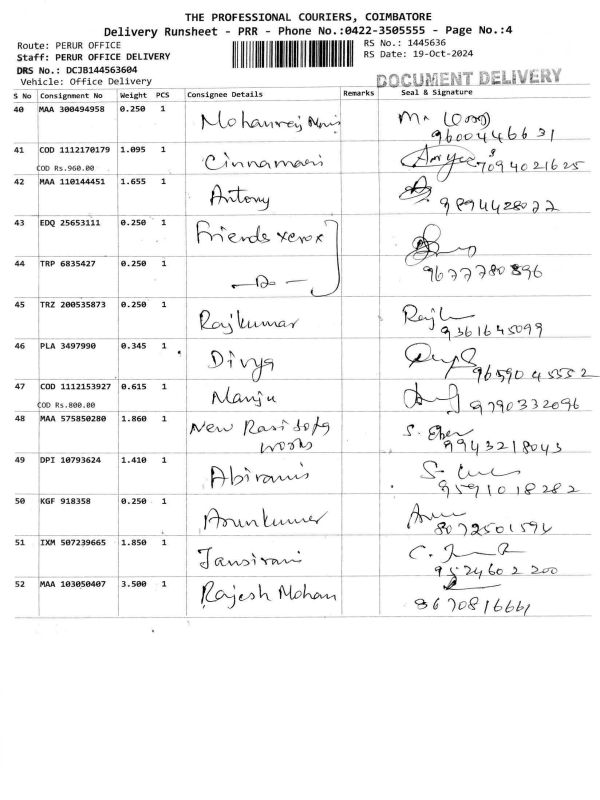 THE PROFESSIONAL COURIERS, COIMBATORE
Delivery Runsheet - PRR - Phone No.:0422-3505555 - Page No.:4
Route: PERUR OFFICE
RS No.: 1445636
Staff: PERUR OFFICE DELIVERY
RS Date: 19-Oct-2024
DRS No.: DCJB144563604
Vehicle: Office Delivery
DOCUMENT DELIVERY
S No Consignment No Weight PCS Consignee Details Remarks Seal & Signature
40 MAA 300494958 0.250 1 Mohanraj
9600446631
41 COD 1112170179 1.095 1 Cinnamani 7094021625
COD Rs.960.00
42 MAA 110144451 1.655 1 Antony
9894428022
43 EDQ 25653111 0.250 1 Friends xerox
44 TRP 6835427 0.250 1 —Do— 9677780896
45 TRZ 200535873 0.250 1 Rajkumar
9361645099
46 PLA 3497990 0.345 1 Divya 9659045552
47 COD 1112153927 0.615 1 Manju 9790332096
COD Rs.800.00
48 MAA 575850280 1.860 1 New Rasi Sofa works
9943218043
49 DPI 10793624 1.410 1 Abirami
9591018282
50 KGF 918358 0.250 1 Arunkumar
8072501594
51 IXM 507239665 1.850 1 Jansirani
9524602200
52 MAA 103050407 3.500 1 Rajesh Mohan
8670816661